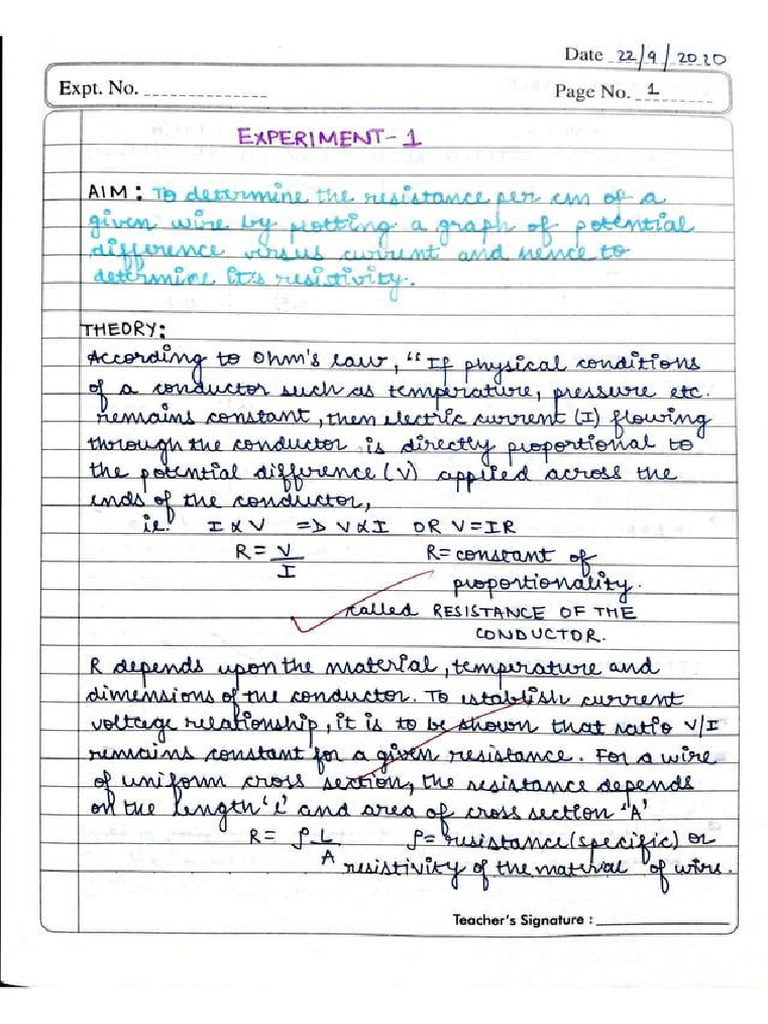 Date 22/9/2020
Expt. No.
Page No. 1
EXPERIMENT-1
AIM: To determine the resistance per cm of a
given wire by plotting a graph of potential
difference versus current and hence to
determine it's resistivity.
THEORY:
According to Ohm's law, "If physical conditions
of a conductor such as temperature, pressure etc.
remains constant, then electric current (I) flowing
through the conductor is directly proportional to
the potential difference (V) applied across the
ends of the conductor,
ie. I ∝ V => V ∝ I OR V=IR
R = V/I R= constant of
proportionality.
called RESISTANCE OF THE
CONDUCTOR.
R depends upon the material, temperature and
dimensions of the conductor. To establish current
voltage relationship, it is to be shown that ratio V/I
remains constant for a given resistance. For a wire
of uniform cross section, the resistance depends
on the length 'l' and area of cross section 'A'
R = ρ L/A ρ= resistance (specific) or
resistivity of the material of wire.
Teacher's Signature :